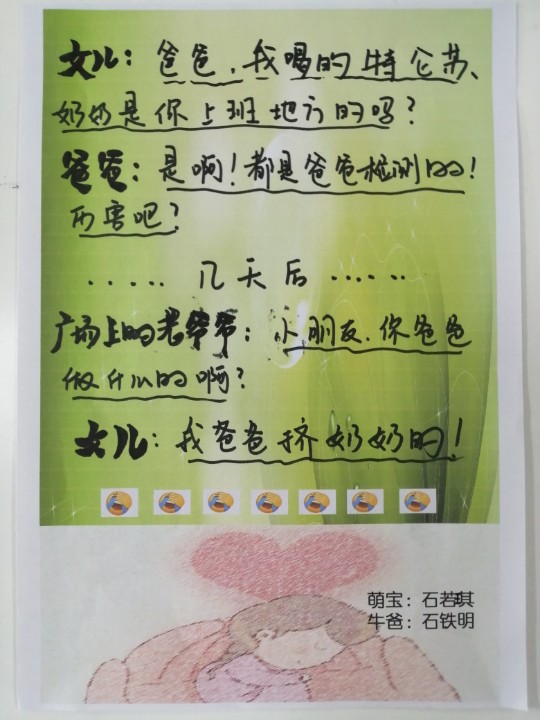 女儿：爸爸，我喝的特仑苏、
奶奶是你上班地方的吗？
爸爸：是啊！都是爸爸检测的！
厉害吧？
‥‥‥几天后‥‥‥
广场上的老爷爷：小朋友，你爸爸
做什么的啊？
女儿：我爸爸挤奶奶的！
萌宝：石若琪
牛爸：石铁明